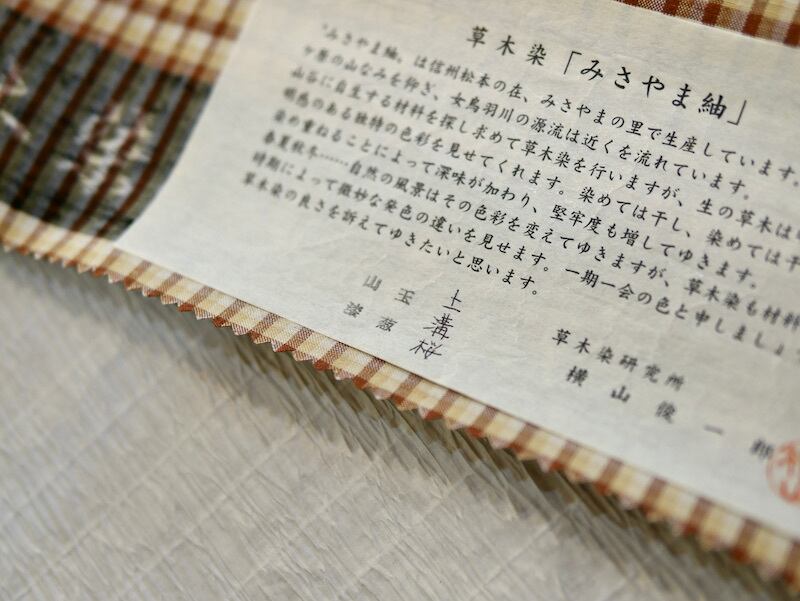 草木染「みさやま紬」
"みさやま紬"は信州松本の在、みさやまの里で生産しています。
ケ原の山なみを仰ぎ、女鳥羽川の源流は近くを流れています。
山谷に自生する材料を探し求めて草木染を行いますが、生の草木は
明感のある独特の色彩を見せてくれます。染めては干し、染めては干
染め重ねることによって深味が加わり、堅牢度も増してゆきます。
春夏秋冬……自然の風景はその色彩を変えてゆきますが、草木染も材料
時期によって微妙な発色の違いを見せます。一期一会の色と申しましょ
草木染の良さを訴えてゆきたいと思います。
山 玉 上
漆 葱 溝
桜
草木染研究所
横山俊一郎